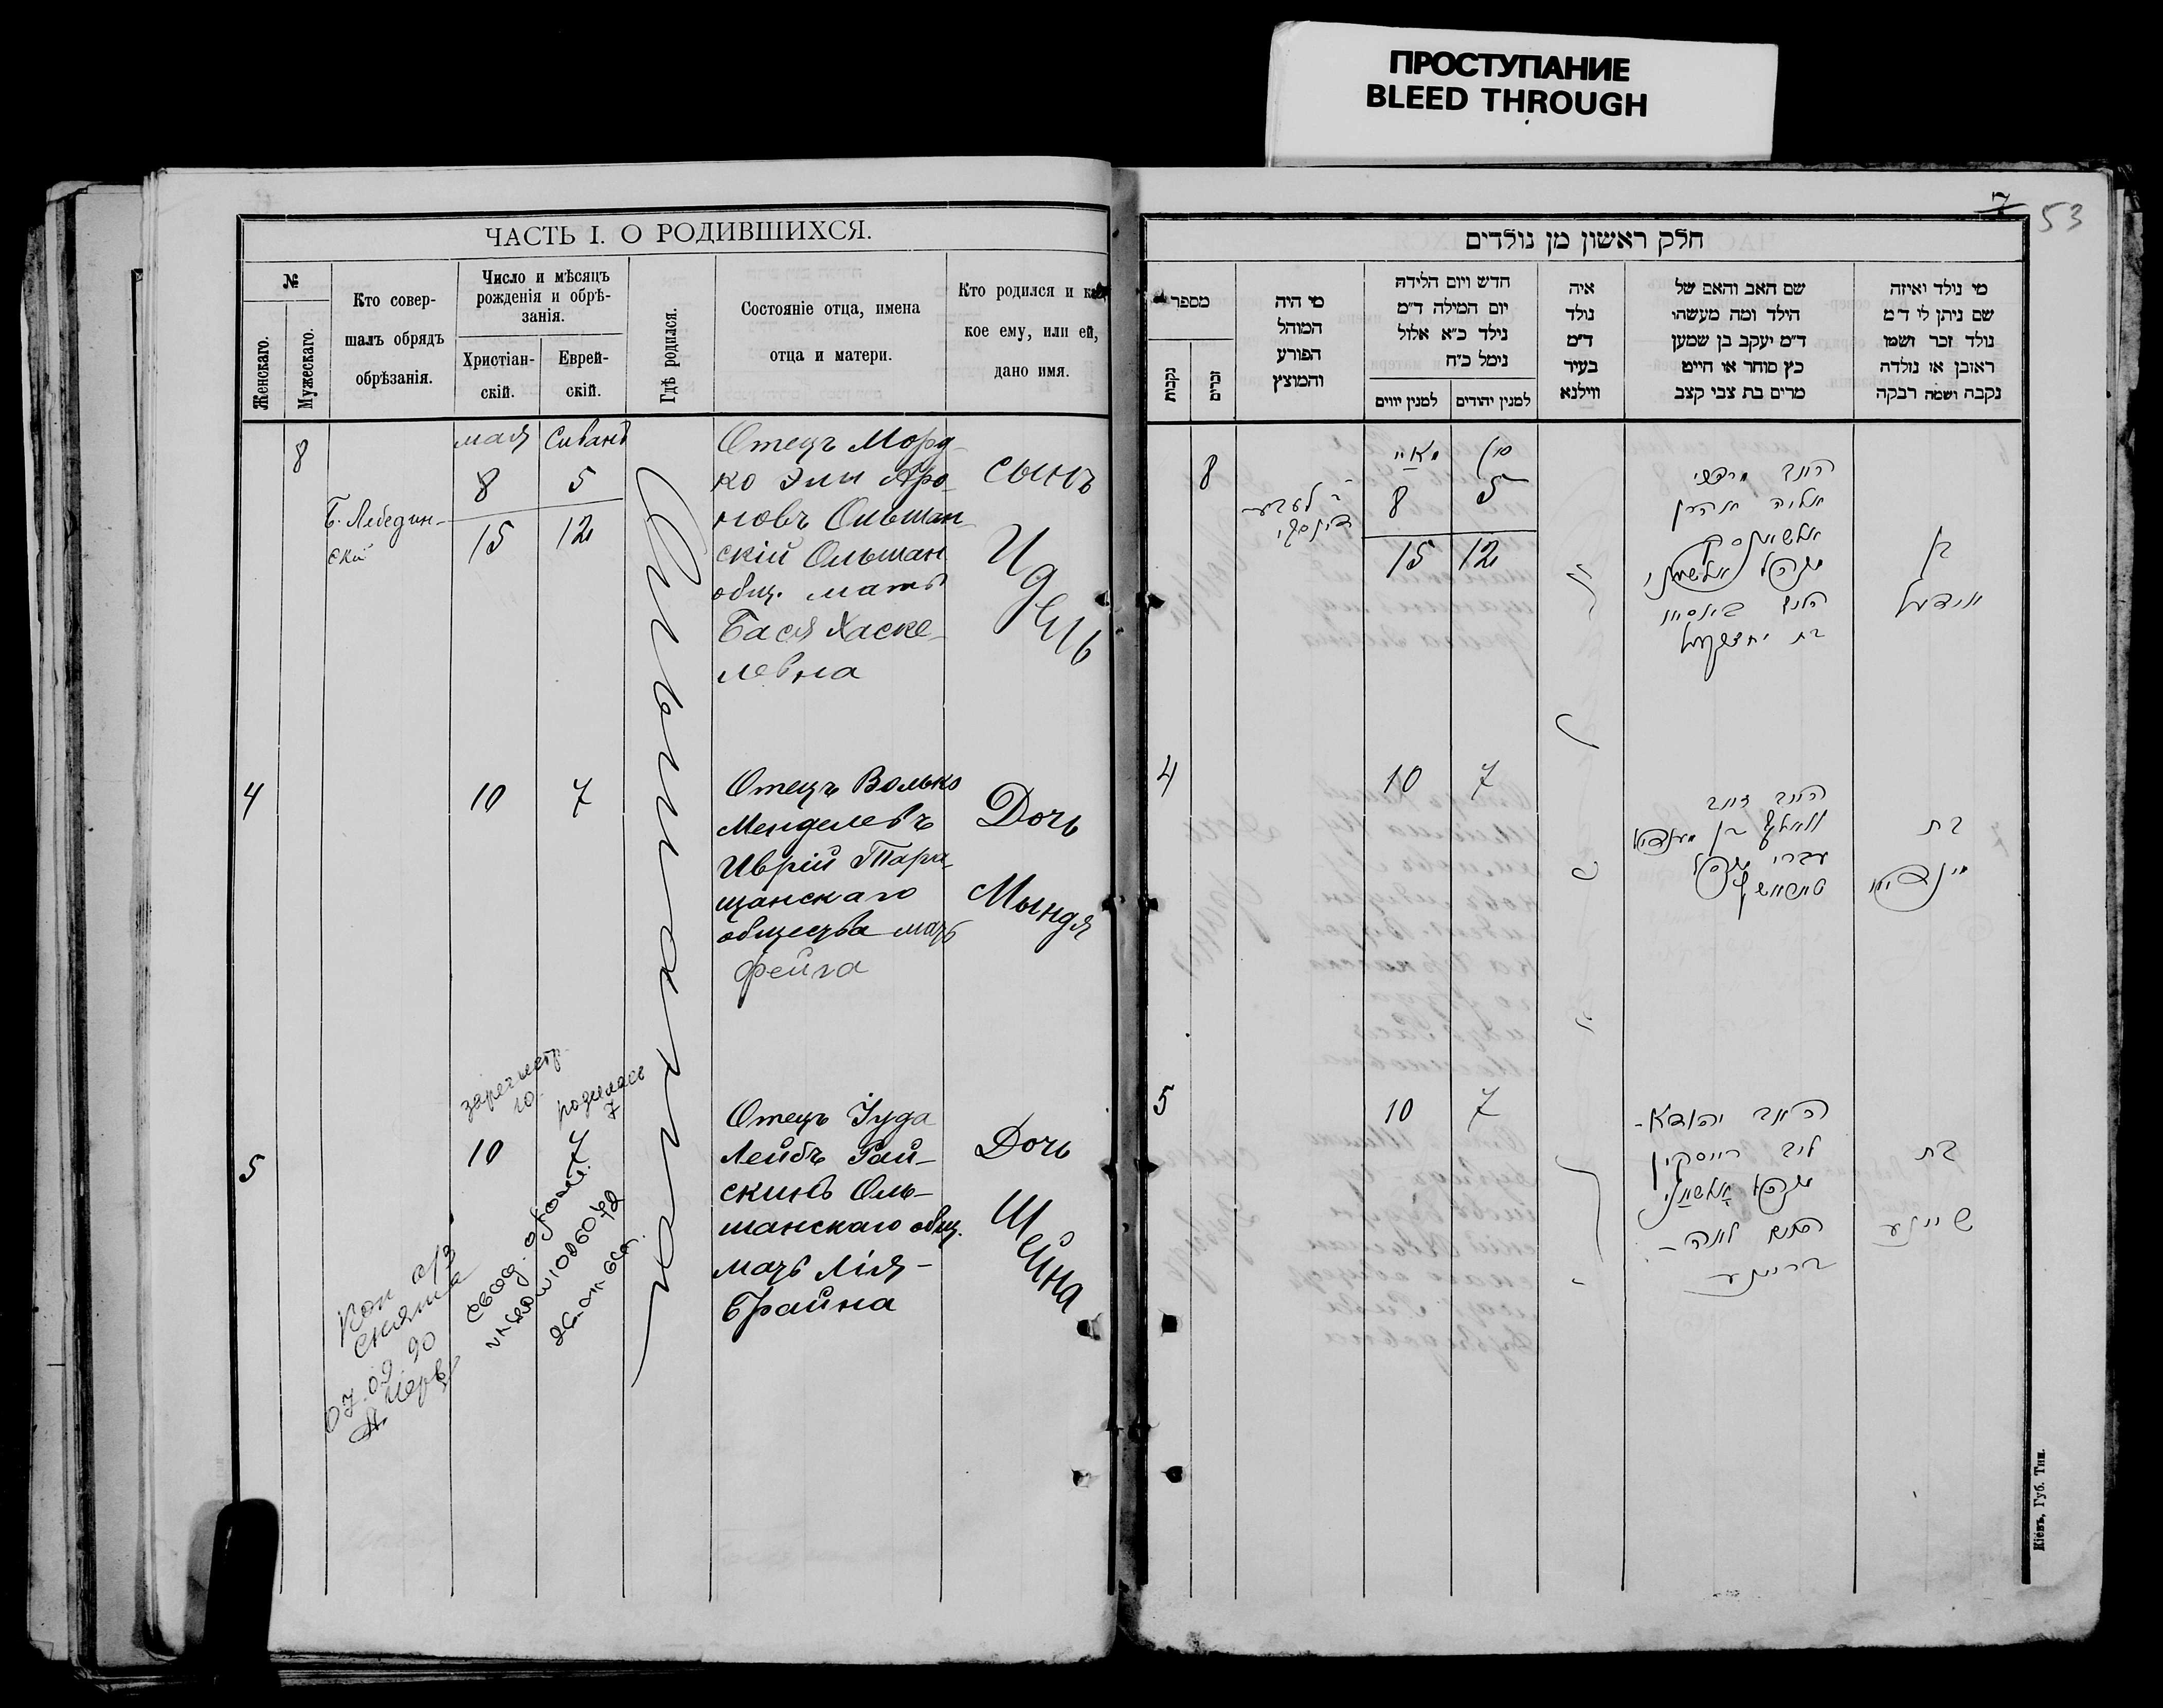 ПРОСТУПАНИЕ
BLEED THROUGH
7
53
ЧАСТЬ I. О РОДИВШИХСЯ.
№
Женскаго.
Мужескаго.
Кто совер-
шалъ обрядъ
обрѣзанія.
Число и мѣсяцъ
рожденія и обрѣ-
занія.
Христіан-
скій.
Еврей-
скій.
Гдѣ родился.
Состояніе отца, имена
отца и матери.
Кто родился и ка
кое ему, или ей,
дано имя.
8
Б. Лебедин-
скій
мая
Сиванъ
8
5
15
12
Отецъ Морд-
ко Эли Аро-
новъ Ольшан
скій Ольшан
общ. мать
Бася Хаске-
левна
сынъ
Идель
4
10
7
Отецъ Волько
Менделевъ
Иврій Тара-
щанскаго
общества мать
Фейга
Дочь
Мындя
зарегистр.
10
родилась
7
5
10
7
Отецъ Іуда
Лейбъ Рай-
скинъ Оль-
шанскаго общ.
мать Лія-
Брайна
Дочь
Шейна
Коп а/з
снята
07.09.90
חלק ראשון מן נולדים
מספר
נקבות
זכרים
מי היה
המוהל
הפורע
והמוצץ
חדש ויום הלידה
יום המילה ד"מ
נילד כ"א אלול
נימל כ"ח
למנין יווים
למנין יהודים
איה
נולד
ד"מ
בעיר
ווילנא
שם האב והאם של
הילד ומה מעשהו
ד"מ יעקב בן שמעון
כץ סוחר או חייט
מרים בת צבי קצב
מי נולד ואיזה
שם ניתן לי ד"מ
נולד זכר ושמו
ראובן או נולדה
נקבה ושמה רבקה
8
מאיי
סיון
8
5
15
12
האב מרדכי
אליה אהרן
בת יחזקאל
בן
אידעל
4
10
7
האב זאב
בת
מינדיא
5
10
7
האב יהודא-
ליב רייסקין
האם לאה-
בריינע
בת
שיינע
Кіевъ, Губ. Тип.